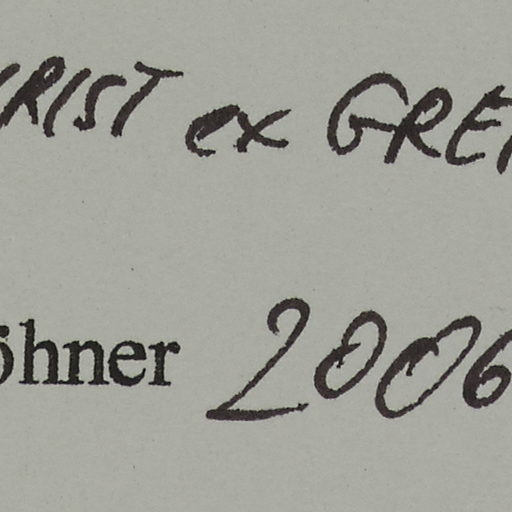 RIST ex GRE
öhner 2006